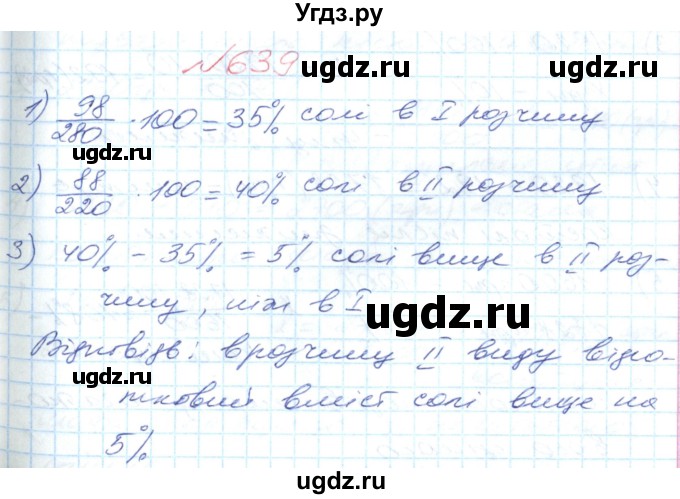 Угдз.ру
№639
1) 98/280 · 100 = 35% солі в I розчину
2) 88/220 · 100 = 40% солі в II розчину
3) 40% - 35% = 5% солі вище в II роз-
чину, ніж в I
Відповідь: в розчину II виду відсо-
тковий вміст солі вище на
5%
ugdz.ru
ugdz.ru
ugdz.ru
ugdz.ru
ugdz.ru
ugdz.ru
ugdz.ru